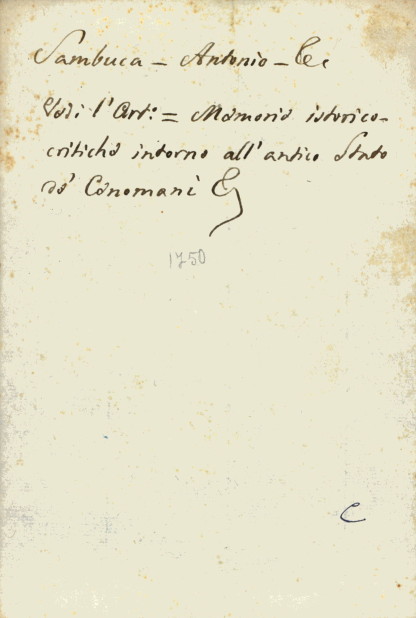 Sambuca - Antonio - &c.
Vedi l'Art: = Memorie istorico-
critiche intorno all'antico Stato
de' Cenomani &
1750
C